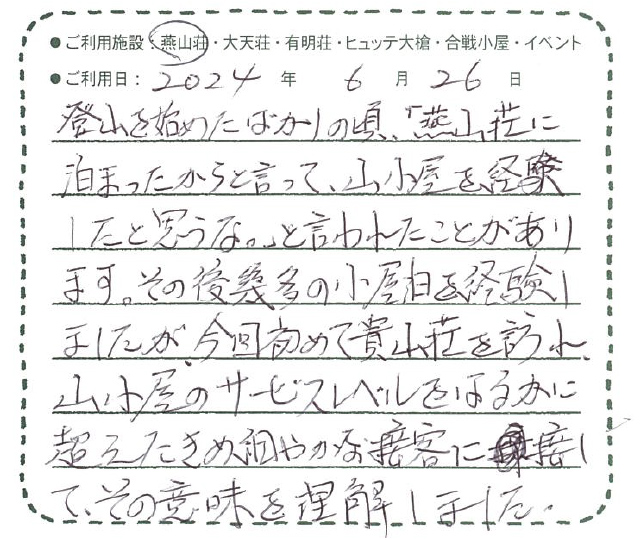 ●ご利用施設：燕山荘・大天荘・有明荘・ヒュッテ大槍・合戦小屋・イベント
●ご利用日：2024年 6月 26日
登山を始めたばかりの頃、「燕山荘に
泊まったからと言って、山小屋を経験
したと思うな。」と言われたことがあり
ます。その後幾多の小屋泊を経験し
ましたが、今回初めて貴山荘を訪れ、
山小屋のサービスレベルをはるかに
超えたきめ細やかな接客に接し
て、その意味を理解しました。